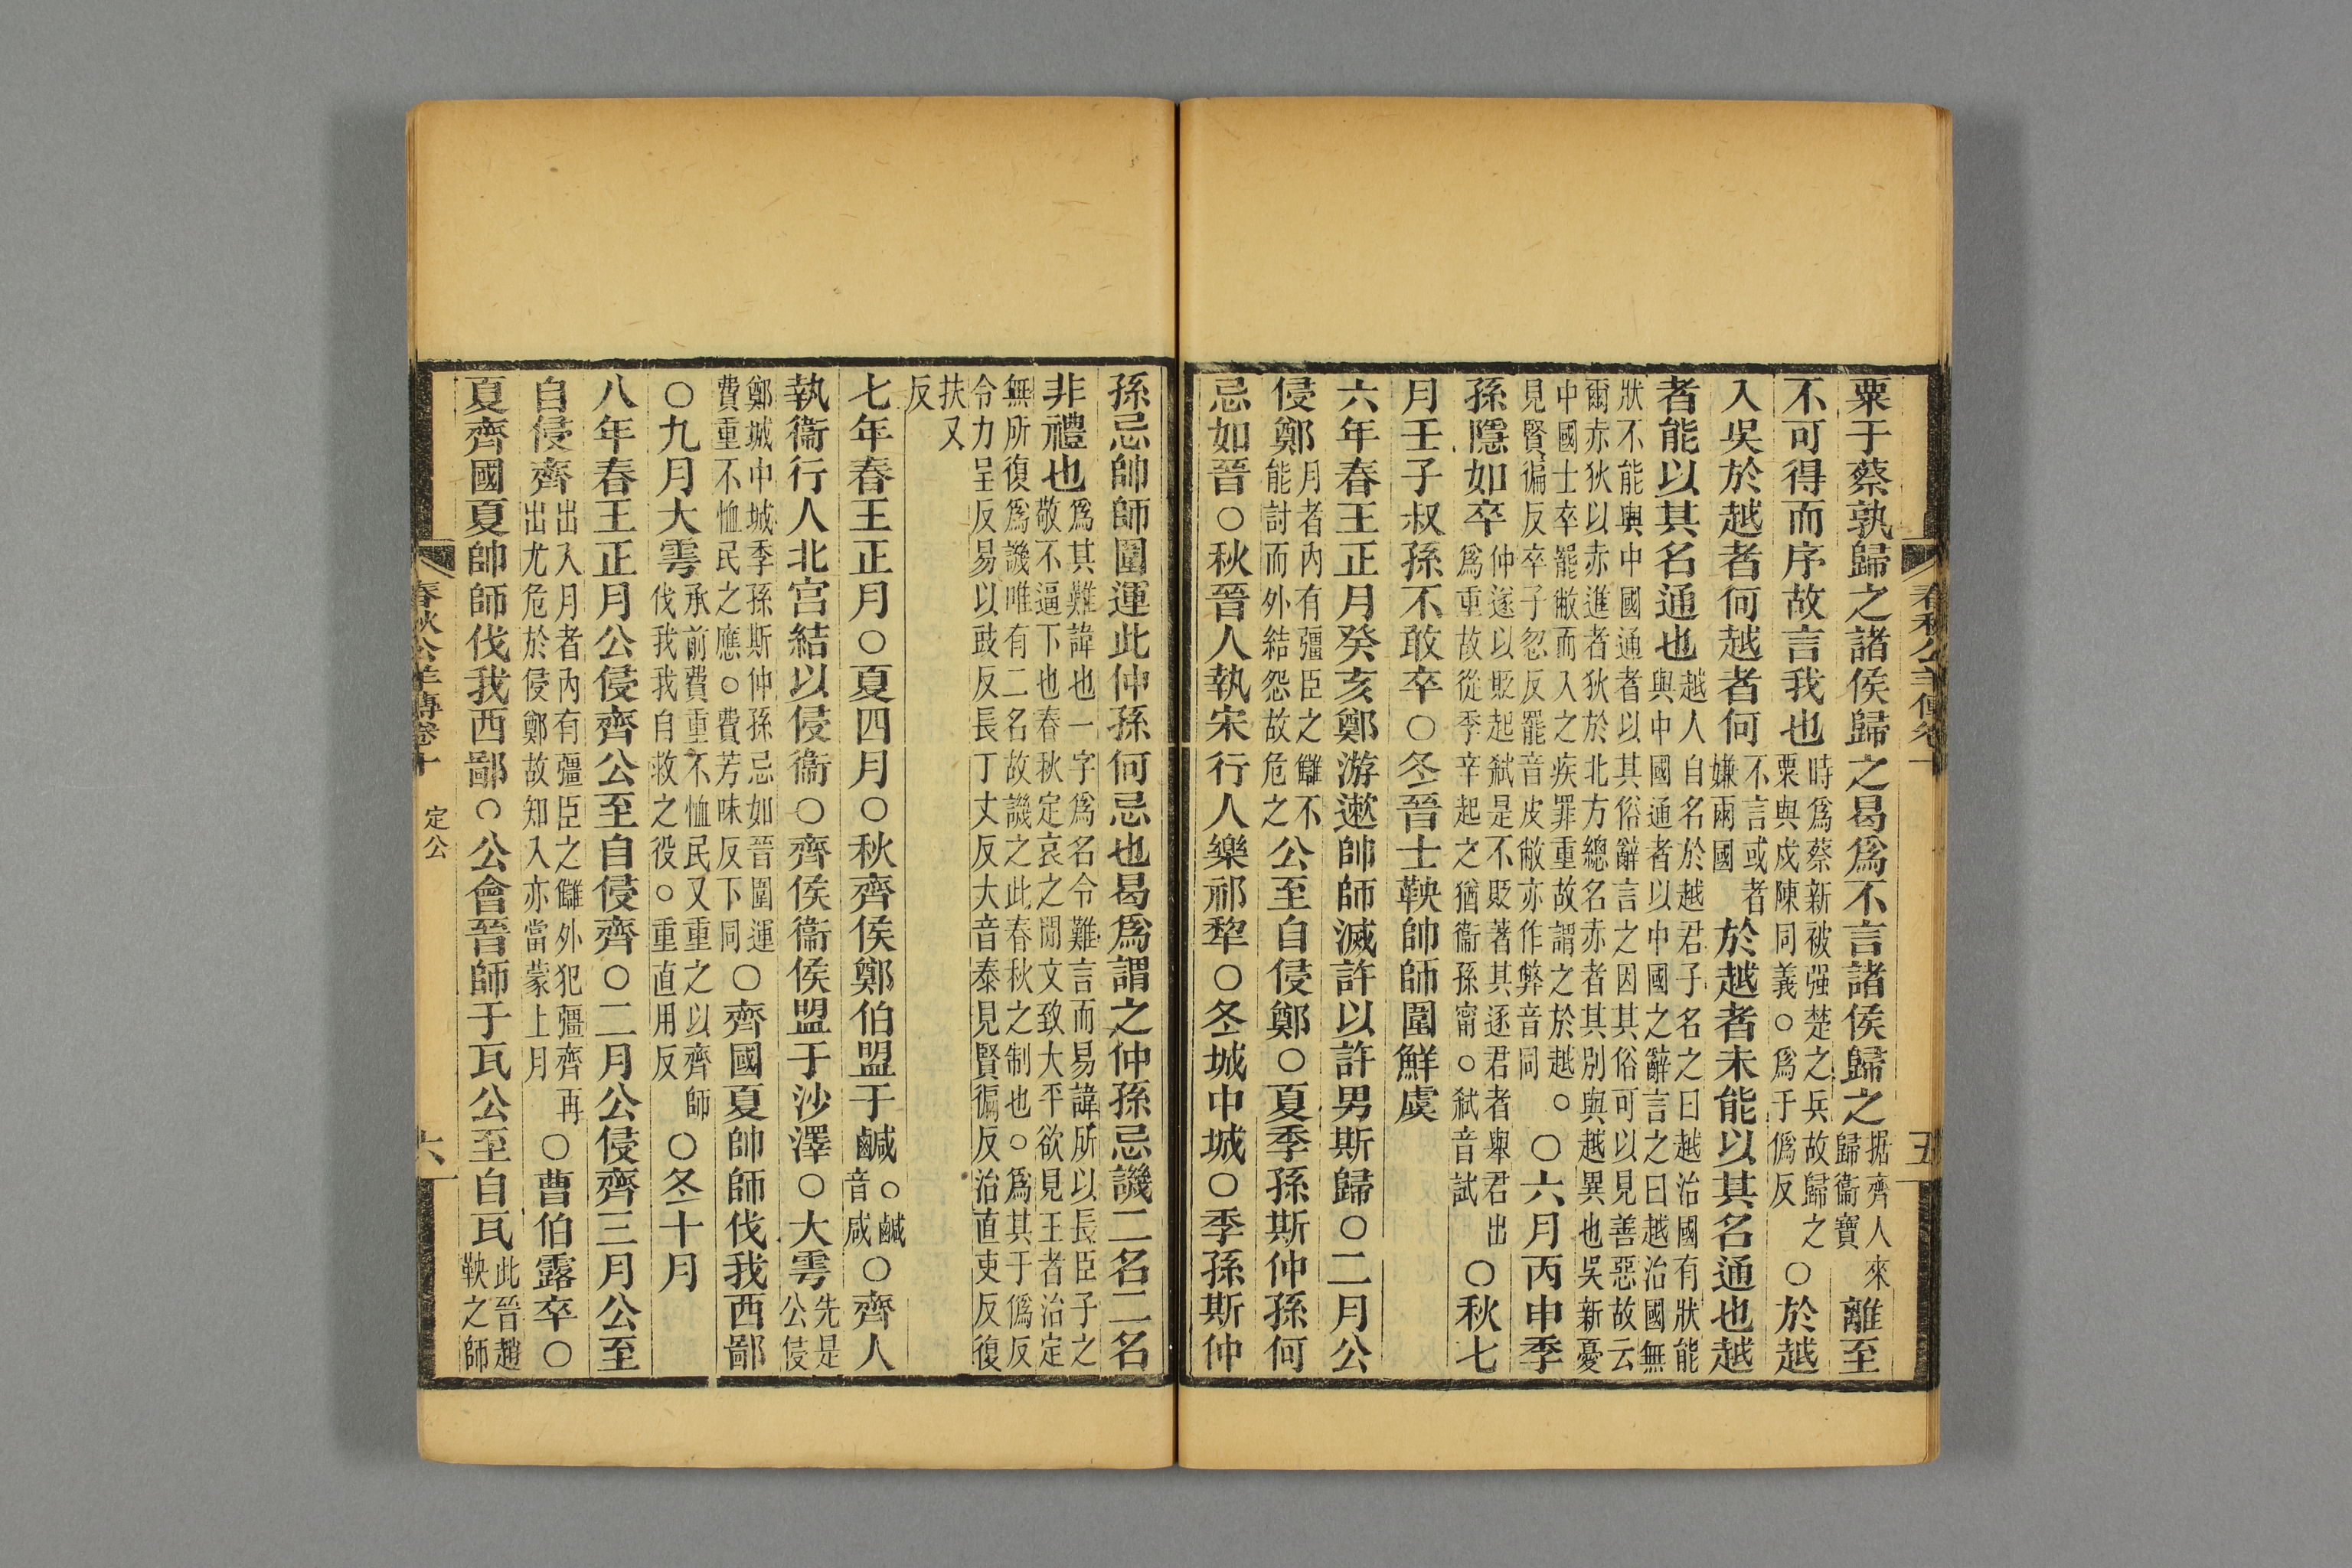 春秋公羊傳卷十
五
粟于蔡孰歸之諸侯歸之曷爲不言諸侯歸之據齊人來歸衞寶離至
不可得而序故言我也時爲蔡新被强楚之兵故歸之粟與戍陳同義○爲于僞反○於越
入吳於越者何越者何不言或者嫌兩國於越者未能以其名通也越
者能以其名通也越人自名於越君子名之曰越治國有狀能與中國通者以中國之辭言之曰越治國無
狀不能與中國通者以其俗辭言之因其俗可以見善惡故云爾赤狄以赤進者狄於北方總名赤者其別與越異也吳新憂
中國士卒罷敝而入之疾罪重故謂之於越○見賢徧反卒子忽反罷音皮敝亦作弊音同○六月丙申季
孫隱如卒仲遂以貶起弒是不貶著其逐君者舉君出爲重故從季辛起之猶衞孫甯○弒音試○秋七
月壬子叔孫不敢卒○冬晉士鞅帥師圍鮮虞
六年春王正月癸亥鄭游遬帥師滅許以許男斯歸○二月公
侵鄭月者內有彊臣之讎不能討而外結怨故危之公至自侵鄭○夏季孫斯仲孫何
忌如晉○秋晉人執宋行人樂祁犂○冬城中城○季孫斯仲
孫忌帥師圍運此仲孫何忌也曷爲謂之仲孫忌譏二名二名
非禮也爲其難諱也一字爲名令難言而易諱所以長臣子之敬不逼下也春秋定哀之閒文致大平欲見王者治定
無所復爲譏唯有二名故譏之此春秋之制也○爲其于僞反令力呈反易以豉反長丁丈反大音泰見賢徧反治直吏反復
扶又反
七年春王正月○夏四月○秋齊侯鄭伯盟于鹹○鹹音咸○齊人
執衞行人北宮結以侵衞○齊侯衞侯盟于沙澤○大雩先是公侵
鄭城中城季孫斯仲孫忌如晉圍運費重不恤民之應○費芳味反下同○齊國夏帥師伐我西鄙
○九月大雩承前費重不恤民又重之以齊師伐我我自救之役○重直用反○冬十月
八年春王正月公侵齊公至自侵齊○二月公侵齊三月公至
自侵齊出入月者內有彊臣之讎外犯彊齊再出尤危於侵鄭故知入亦當蒙上月○曹伯露卒○
夏齊國夏帥師伐我西鄙○公會晉師于瓦公至自瓦此晉趙鞅之師
春秋公羊傳卷十
定公
六